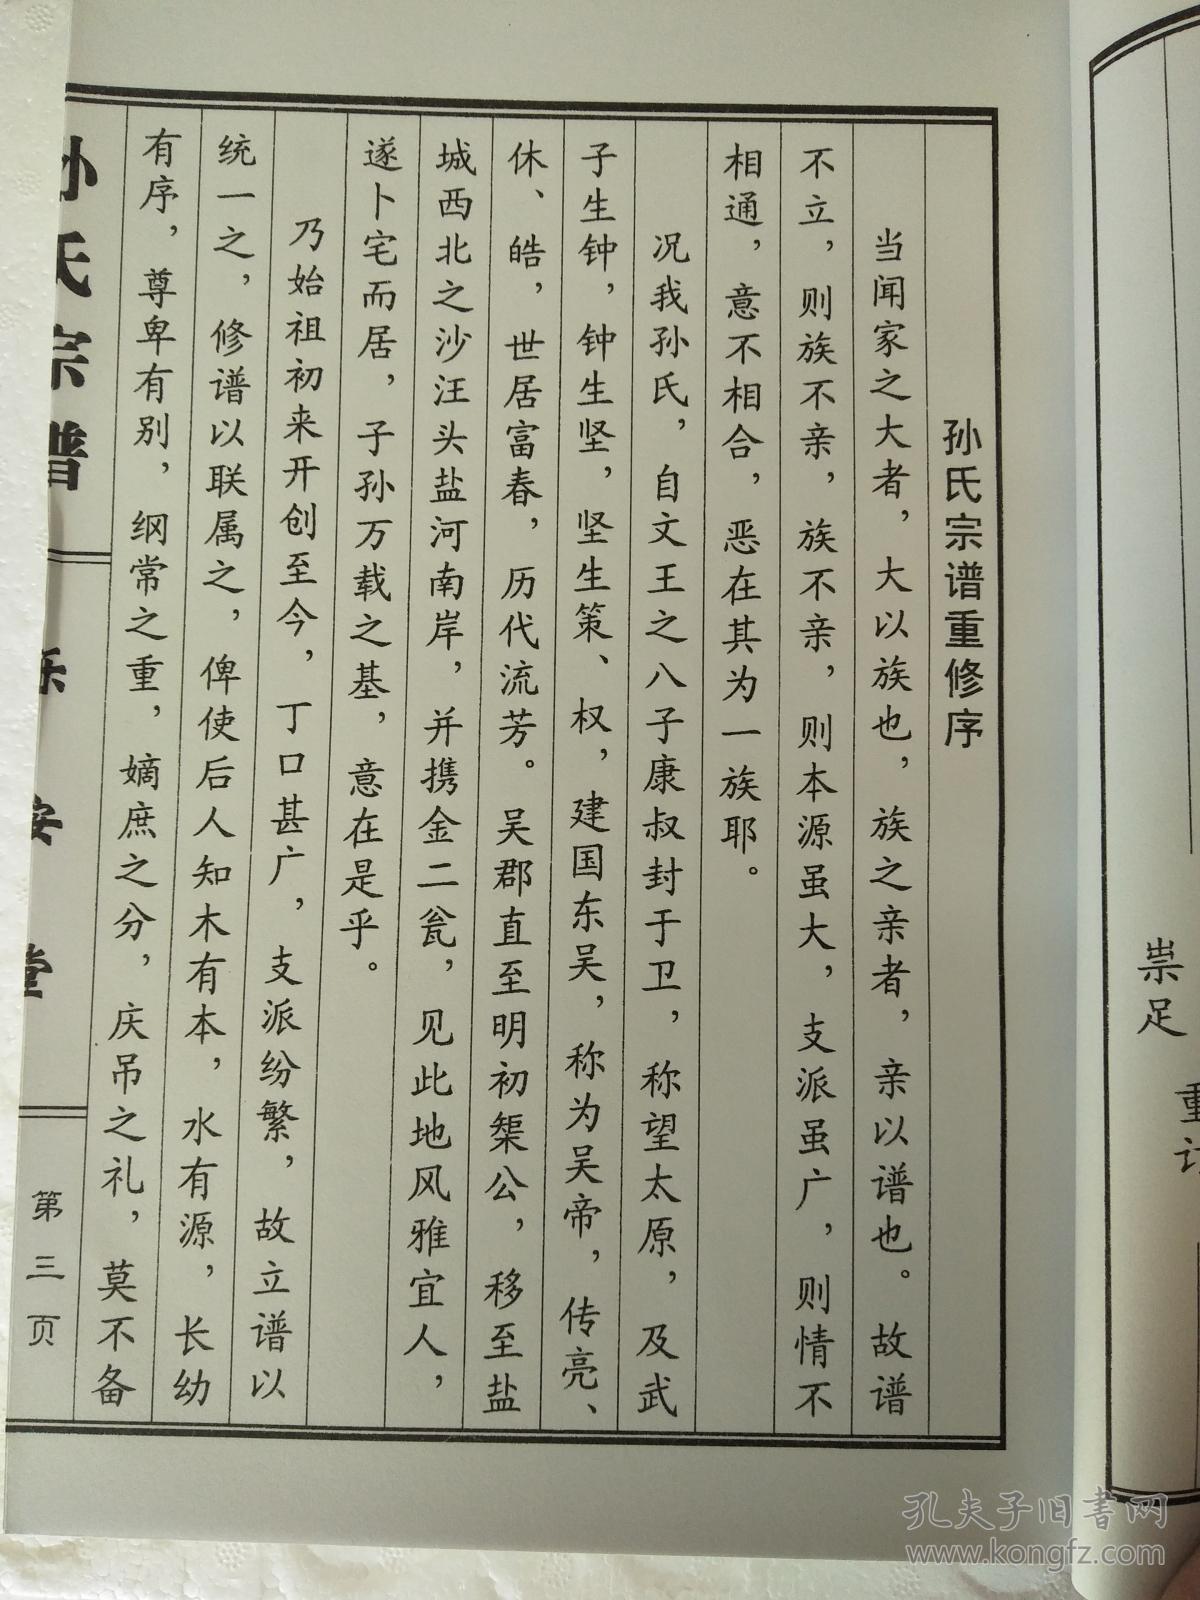 孙氏宗谱重修序
当闻家之大者，大以族也，族之亲者，亲以谱也。故谱
不立，则族不亲，族不亲，则本源虽大，支派虽广，则情不
相通，意不相合，恶在其为一族耶。
况我孙氏，自文王之八子康叔封于卫，称望太原，及武
子生钟，钟生坚，坚生策、权，建国东吴，称为吴帝，传亮、
休、皓，世居富春，历代流芳。吴郡直至明初榘公，移至盐
城西北之沙汪头盐河南岸，并携金二瓮，见此地风雅宜人，
遂卜宅而居，子孙万载之基，意在是乎。
乃始祖初来开创至今，丁口甚广，支派纷繁，故立谱以
统一之，修谱以联属之，俾使后人知木有本，水有源，长幼
有序，尊卑有别，纲常之重，嫡庶之分，庆吊之礼，莫不备
孙氏宗谱
乐安堂
第三页
崇足
重
孔夫子旧书网
www.kongfz.com